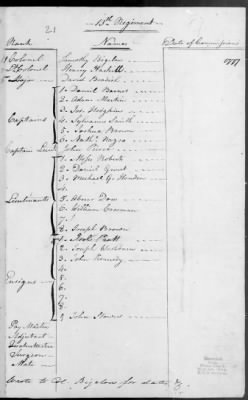 21
15th Regiment
Rank Names Date of Commissions
Colonel Timothy Bigelow 1777
Lt Colonel Henry Haskell
Major
Captains
1 Daniel Barnes
2 Adam Martin
3 Jos Hodgkins
4 Sylvanus Smith
5 Joshua Brown
6
Captain Lieut John Pierce
Lieutenants
1 Moses Roberts
2 Daniel
3 Michael G. Houdin
4
5 Abner Dow
6 William
7
8 Joseph Brown
Ensigns
1 Noah Pratt
2 Joseph
3 John Kennedy
4
5
6
7
8
9 John
Pay Master
Adjutant
Quartermaster
Surgeon
Mate
wrote to Col. Bigelow for dates &c